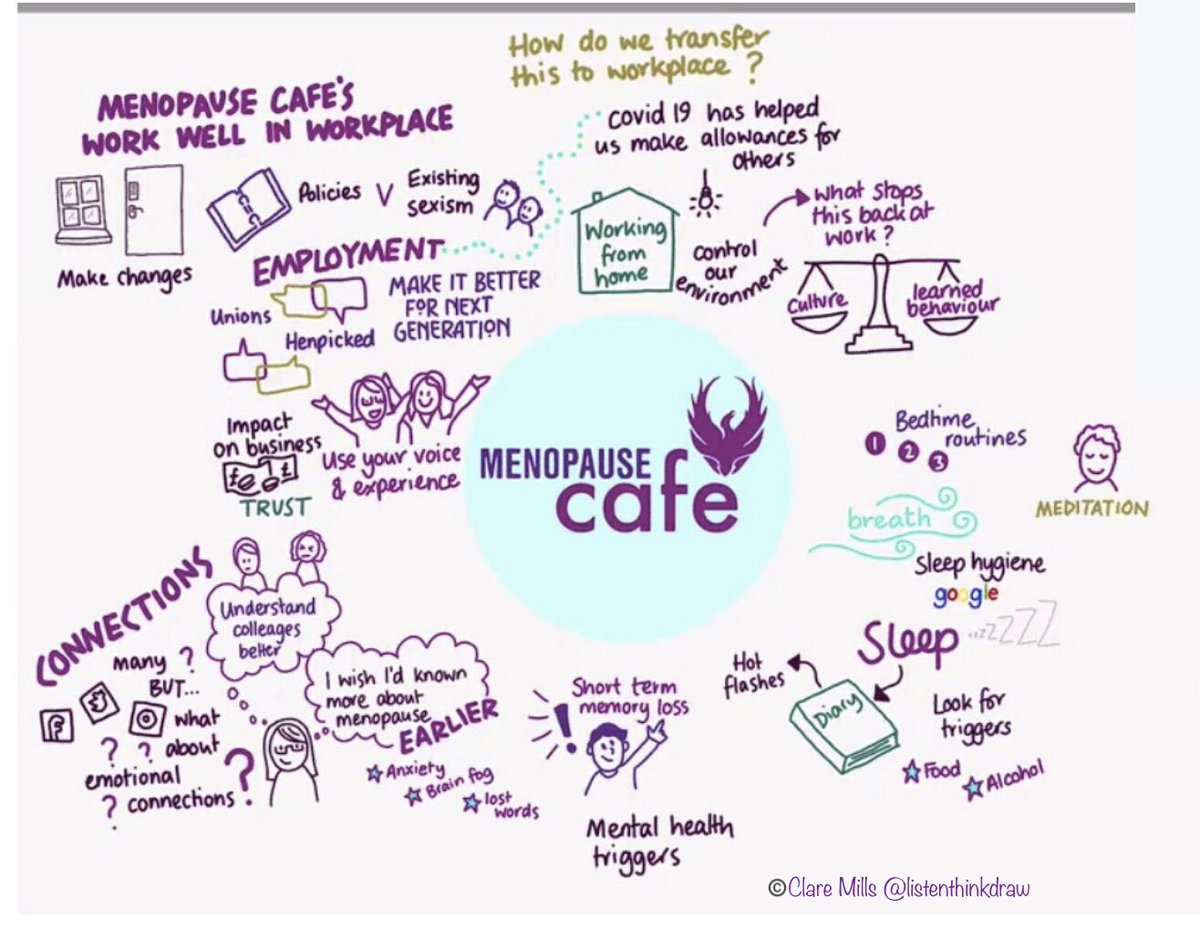 How do we transfer
this to workplace ?
MENOPAUSE CAFE'S
WORK WELL IN WORKPLACE
covid 19 has helped
us make allowances for
others
Make changes
Policies V Existing
sexism
EMPLOYMENT
Unions
Henpicked
MAKE IT BETTER
FOR NEXT
GENERATION
Working
from
home
control
our
environment
What stops
this back at
work ?
culture
learned
behaviour
Impact
on business
£ £
TRUST
Use your voice
& experience
MENOPAUSE
cafe
Bedtime
routines
1
2
3
MEDITATION
breath
Sleep hygiene
google
Sleep
zzzZZZZ
Hot
flashes
Diary
Look for
triggers
Food
Alcohol
CONNECTIONS
Understand
colleages
better
many ?
BUT...
what
? ? about
emotional
? connections ?
I wish I'd known
more about
menopause
EARLIER
Anxiety
Brain fog
lost
words
Short term
memory loss
!
Mental health
triggers
©Clare Mills @listenthinkdraw